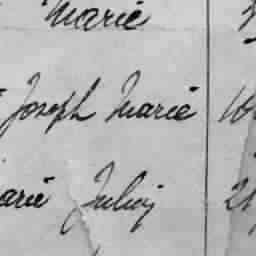 Marie
Joseph Marie 16
arie Julien 21